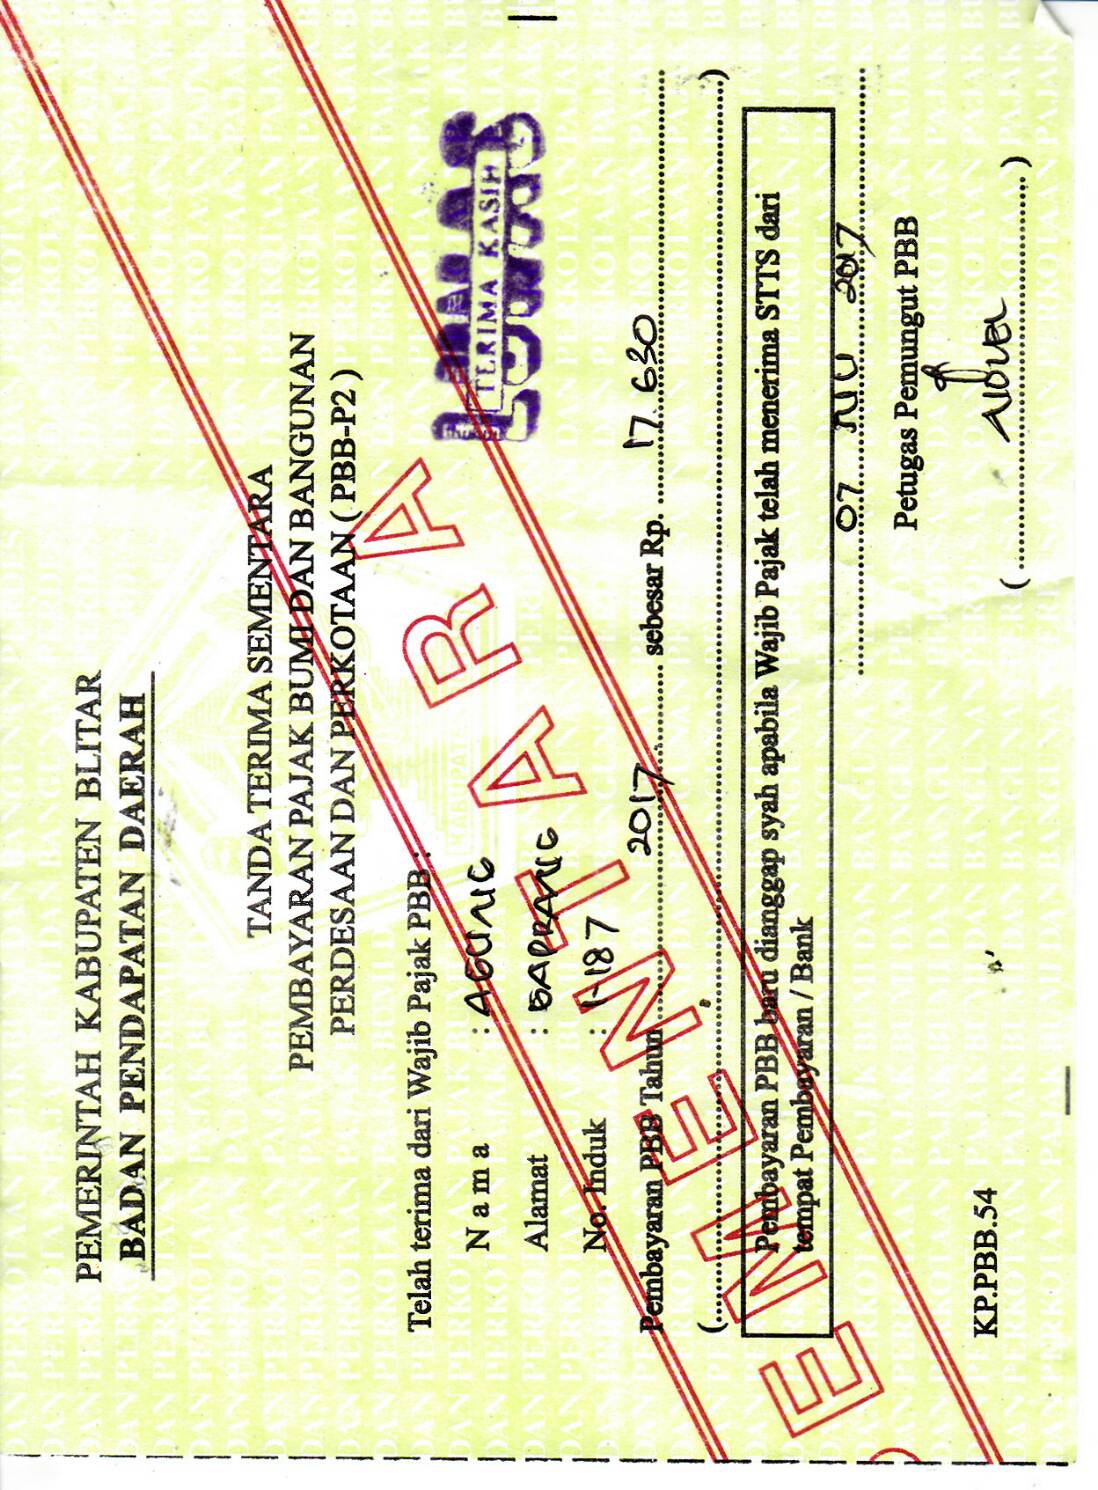 PEMERINTAH KABUPATEN BLITAR
BADAN PENDAPATAN DAERAH
TANDA TERIMA SEMENTARA
PEMBAYARAN PAJAK BUMI DAN BANGUNAN
PERDESAAN DAN PERKOTAAN ( PBB-P2 )
Telah terima dari Wajib Pajak PBB :
N a m a : AGUNG
Alamat :
No. Induk : 1-187
Pembayaran PBB Tahun 2017 sebesar Rp. 17 630
(....................)
LUNAS
TERIMA KASIH
Pembayaran PBB baru dianggap syah apabila Wajib Pajak telah menerima STTS dari
tempat Pembayaran / Bank
07 JUL 2017
Petugas Pemungut PBB
KP.PBB.54
SEMENTARA